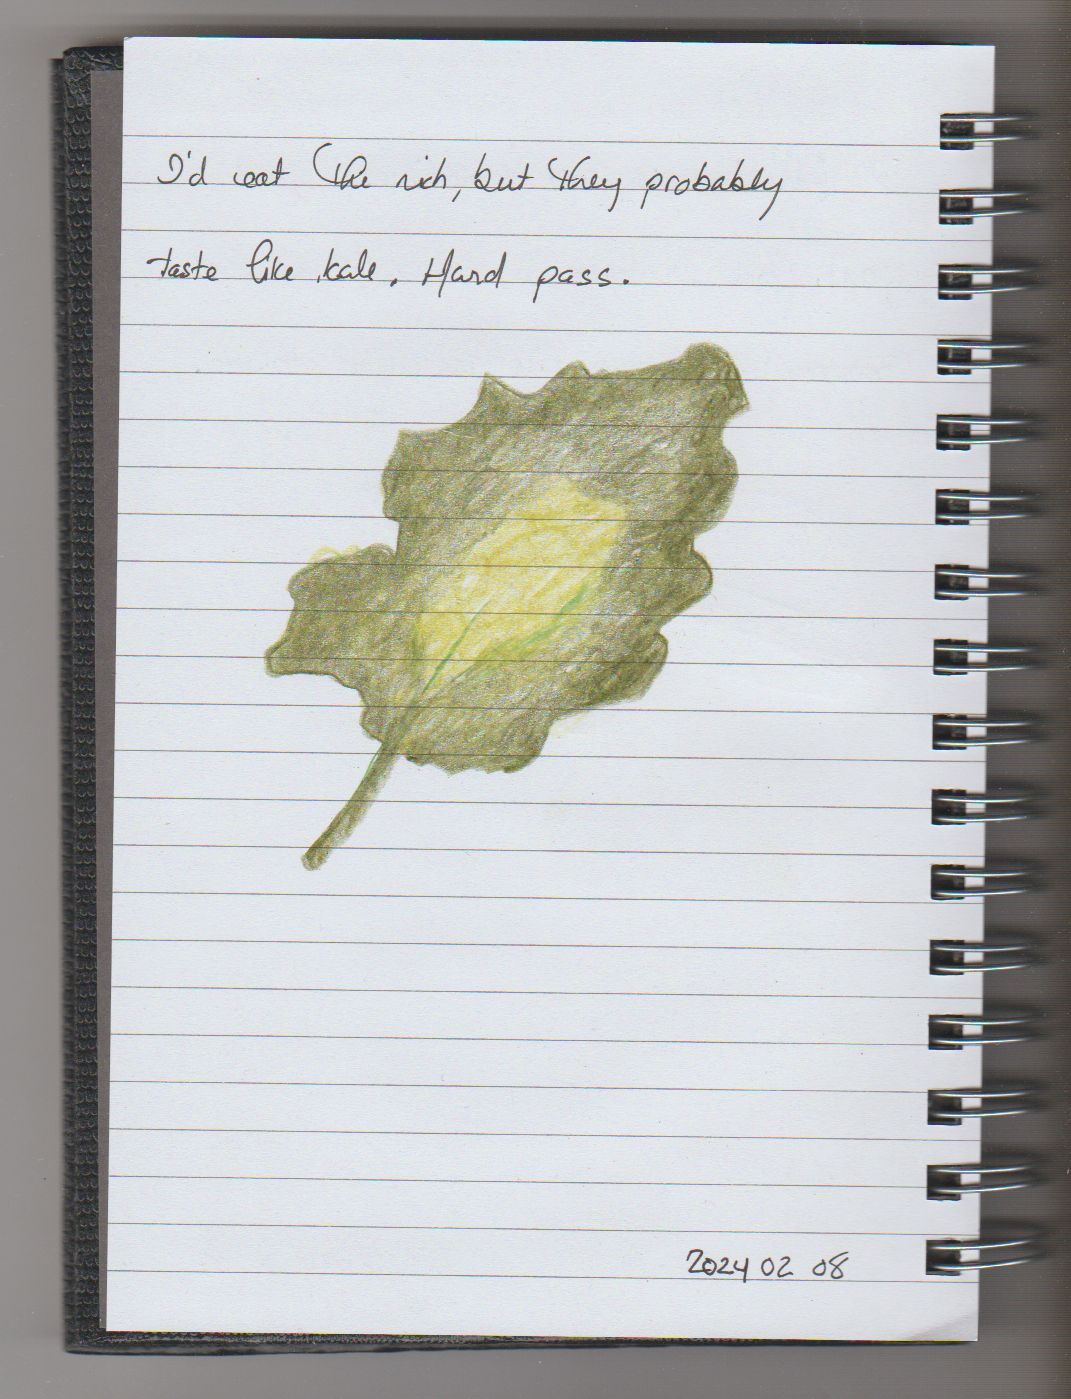 I'd eat the rich, but they probably
taste like kale. Hard pass.
2024 02 08